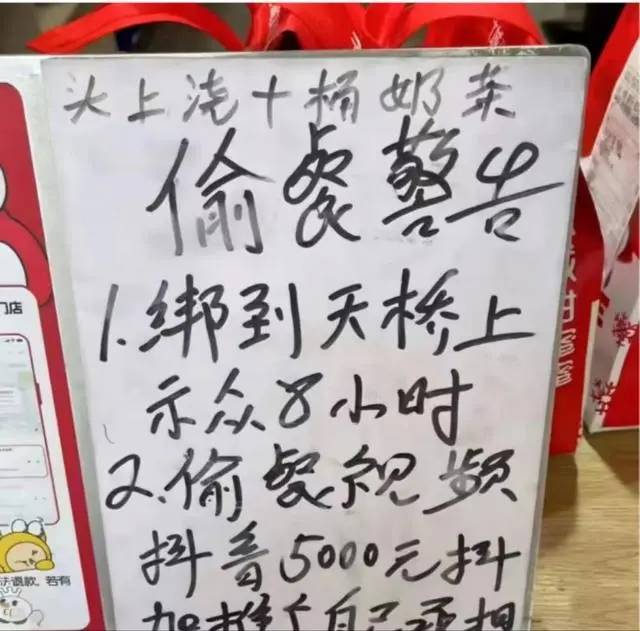 头上浇十桶奶茶
偷餐警告
1.绑到天桥上
示众8小时
2.偷餐视频
抖音5000元抖
加推广自己承担
门店
法退款,若有